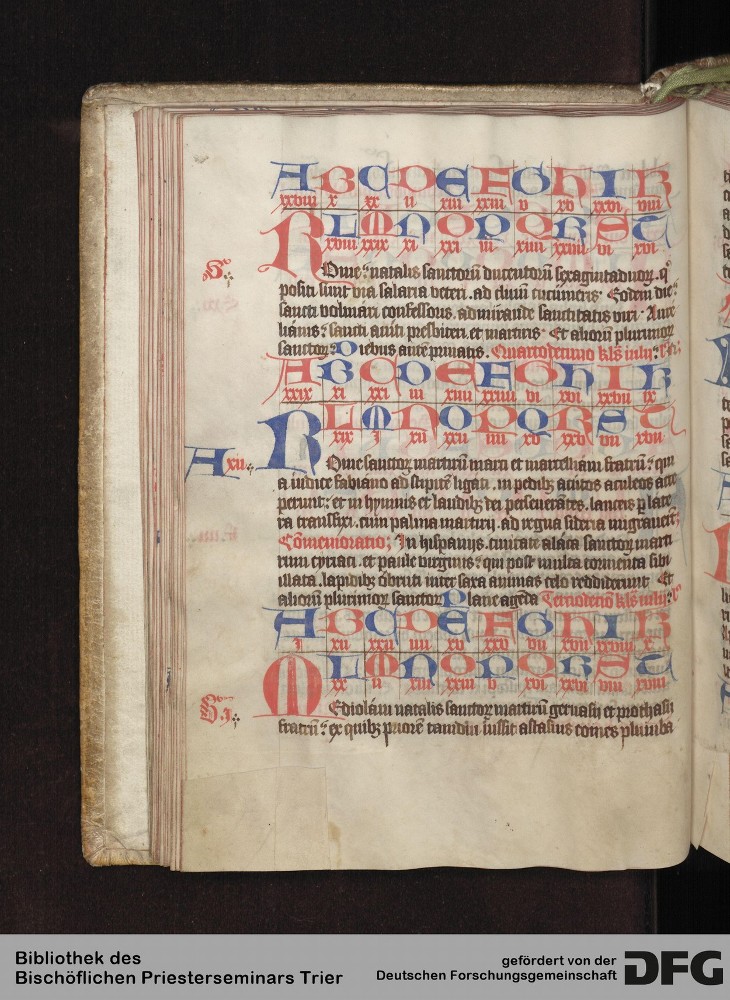 A B C D E F G H I K
xxviii x xx ii xiii xxiii v xv xxvi viii
L M N O P Q R S T
xviii xxix xi xxi iii xiiii xxiiii vi xvi
Rome ⁊ natalis sanctorū ducentorū sexagintaduorꝫ. qͦ
positi sunt via salaria veteri. ad cliuū cucumeris. Eodem die
sancti volmari confessoris. admirande sanctitatis viri. Aure
lianis ⁊ sancti auiti presbiteri. et martiris. Et aliorū plurimorꝫ
sanctorꝫ. Diebus ante primatis. Quartodecimo kls̄ iulij
A B C D E F G H I K
xxix xi xxi iii xiiii xxiiii vi xvi xxvii ix
L M N O P Q R S T
xix i xii xxii iiii xv xxv vii xvii
A xii
Rome sanctorꝫ martirū marci et marcelliani fratrū ⁊ qui
a iudice fabiano ad stipitē ligati. in pedibꝫ acutos aculeos acce
perunt ⁊ et in hymnis et laudibꝫ dei perseuerātes. lanceis ꝑ late
ra transfixi. cum palma martirij. ad regna siderea migrauerūt
Cōmemoratio; In hispanijs. ciuitate alaca sanctorꝫ marti
rum cyriaci. et paule virginis ⁊ qui post multa tormenta sibi
illata. lapidibꝫ obruti inter saxa animas celo reddiderunt. Et
aliorū plurimorꝫ sanctorꝫ Plane agēda Terciodecīo kls̄ iulij
A B C D E F G H I K
i xii xxii iiii xv xxv vii xvii xxviii x
L M N O P Q R S T
xx ii xiii xxiii v xvi xxvi viii xviii
Mediolani natalis sanctorꝫ martirū geruasij et prothasij
fratrū ⁊ ex quibꝫ priorē tamdiu iussit astasius comes plumba
Bibliothek des
Bischöflichen Priesterseminars Trier
gefördert von der
Deutschen Forschungsgemeinschaft
DFG